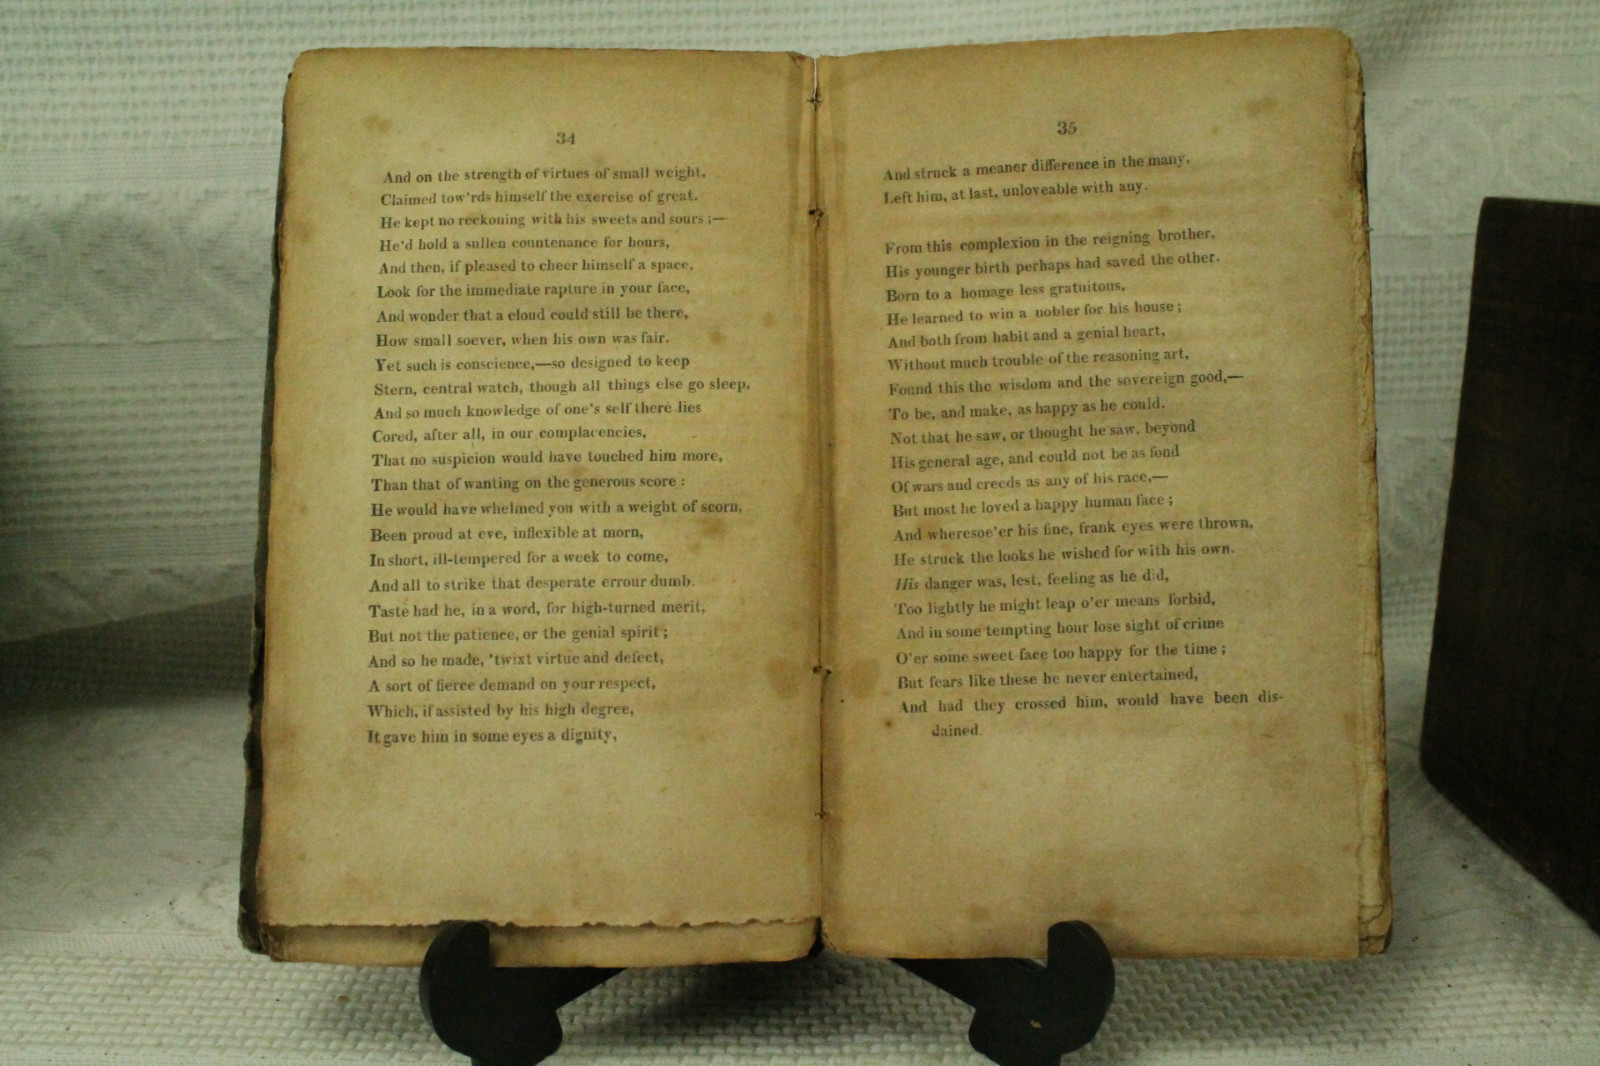 34
And on the strength of virtues of small weight,
Claimed tow'rds himself the exercise of great.
He kept no reckoning with his sweets and sours ;—
He'd hold a sullen countenance for hours,
And then, if pleased to cheer himself a space,
Look for the immediate rapture in your face,
And wonder that a cloud could still be there,
How small soever, when his own was fair.
Yet such is conscience,—so designed to keep
Stern, central watch, though all things else go sleep,
And so much knowledge of one's self there lies
Cored, after all, in our complacencies,
That no suspicion would have touched him more,
Than that of wanting on the generous score :
He would have whelmed you with a weight of scorn,
Been proud at eve, inflexible at morn,
In short, ill-tempered for a week to come,
And all to strike that desperate errour dumb.
Taste had he, in a word, for high-turned merit,
But not the patience, or the genial spirit ;
And so he made, 'twixt virtue and defect,
A sort of fierce demand on your respect,
Which, if assisted by his high degree,
It gave him in some eyes a dignity,
35
And struck a meaner difference in the many,
Left him, at last, unloveable with any.
From this complexion in the reigning brother,
His younger birth perhaps had saved the other.
Born to a homage less gratuitous,
He learned to win a nobler for his house ;
And both from habit and a genial heart,
Without much trouble of the reasoning art,
Found this the wisdom and the sovereign good,—
To be, and make, as happy as he could.
Not that he saw, or thought he saw, beyond
His general age, and could not be as fond
Of wars and creeds as any of his race,—
But most he loved a happy human face ;
And wheresoe'er his fine, frank eyes were thrown,
He struck the looks he wished for with his own.
His danger was, lest, feeling as he did,
Too lightly he might leap o'er means forbid,
And in some tempting hour lose sight of crime
O'er some sweet face too happy for the time ;
But fears like these he never entertained,
And had they crossed him, would have been dis-
dained.